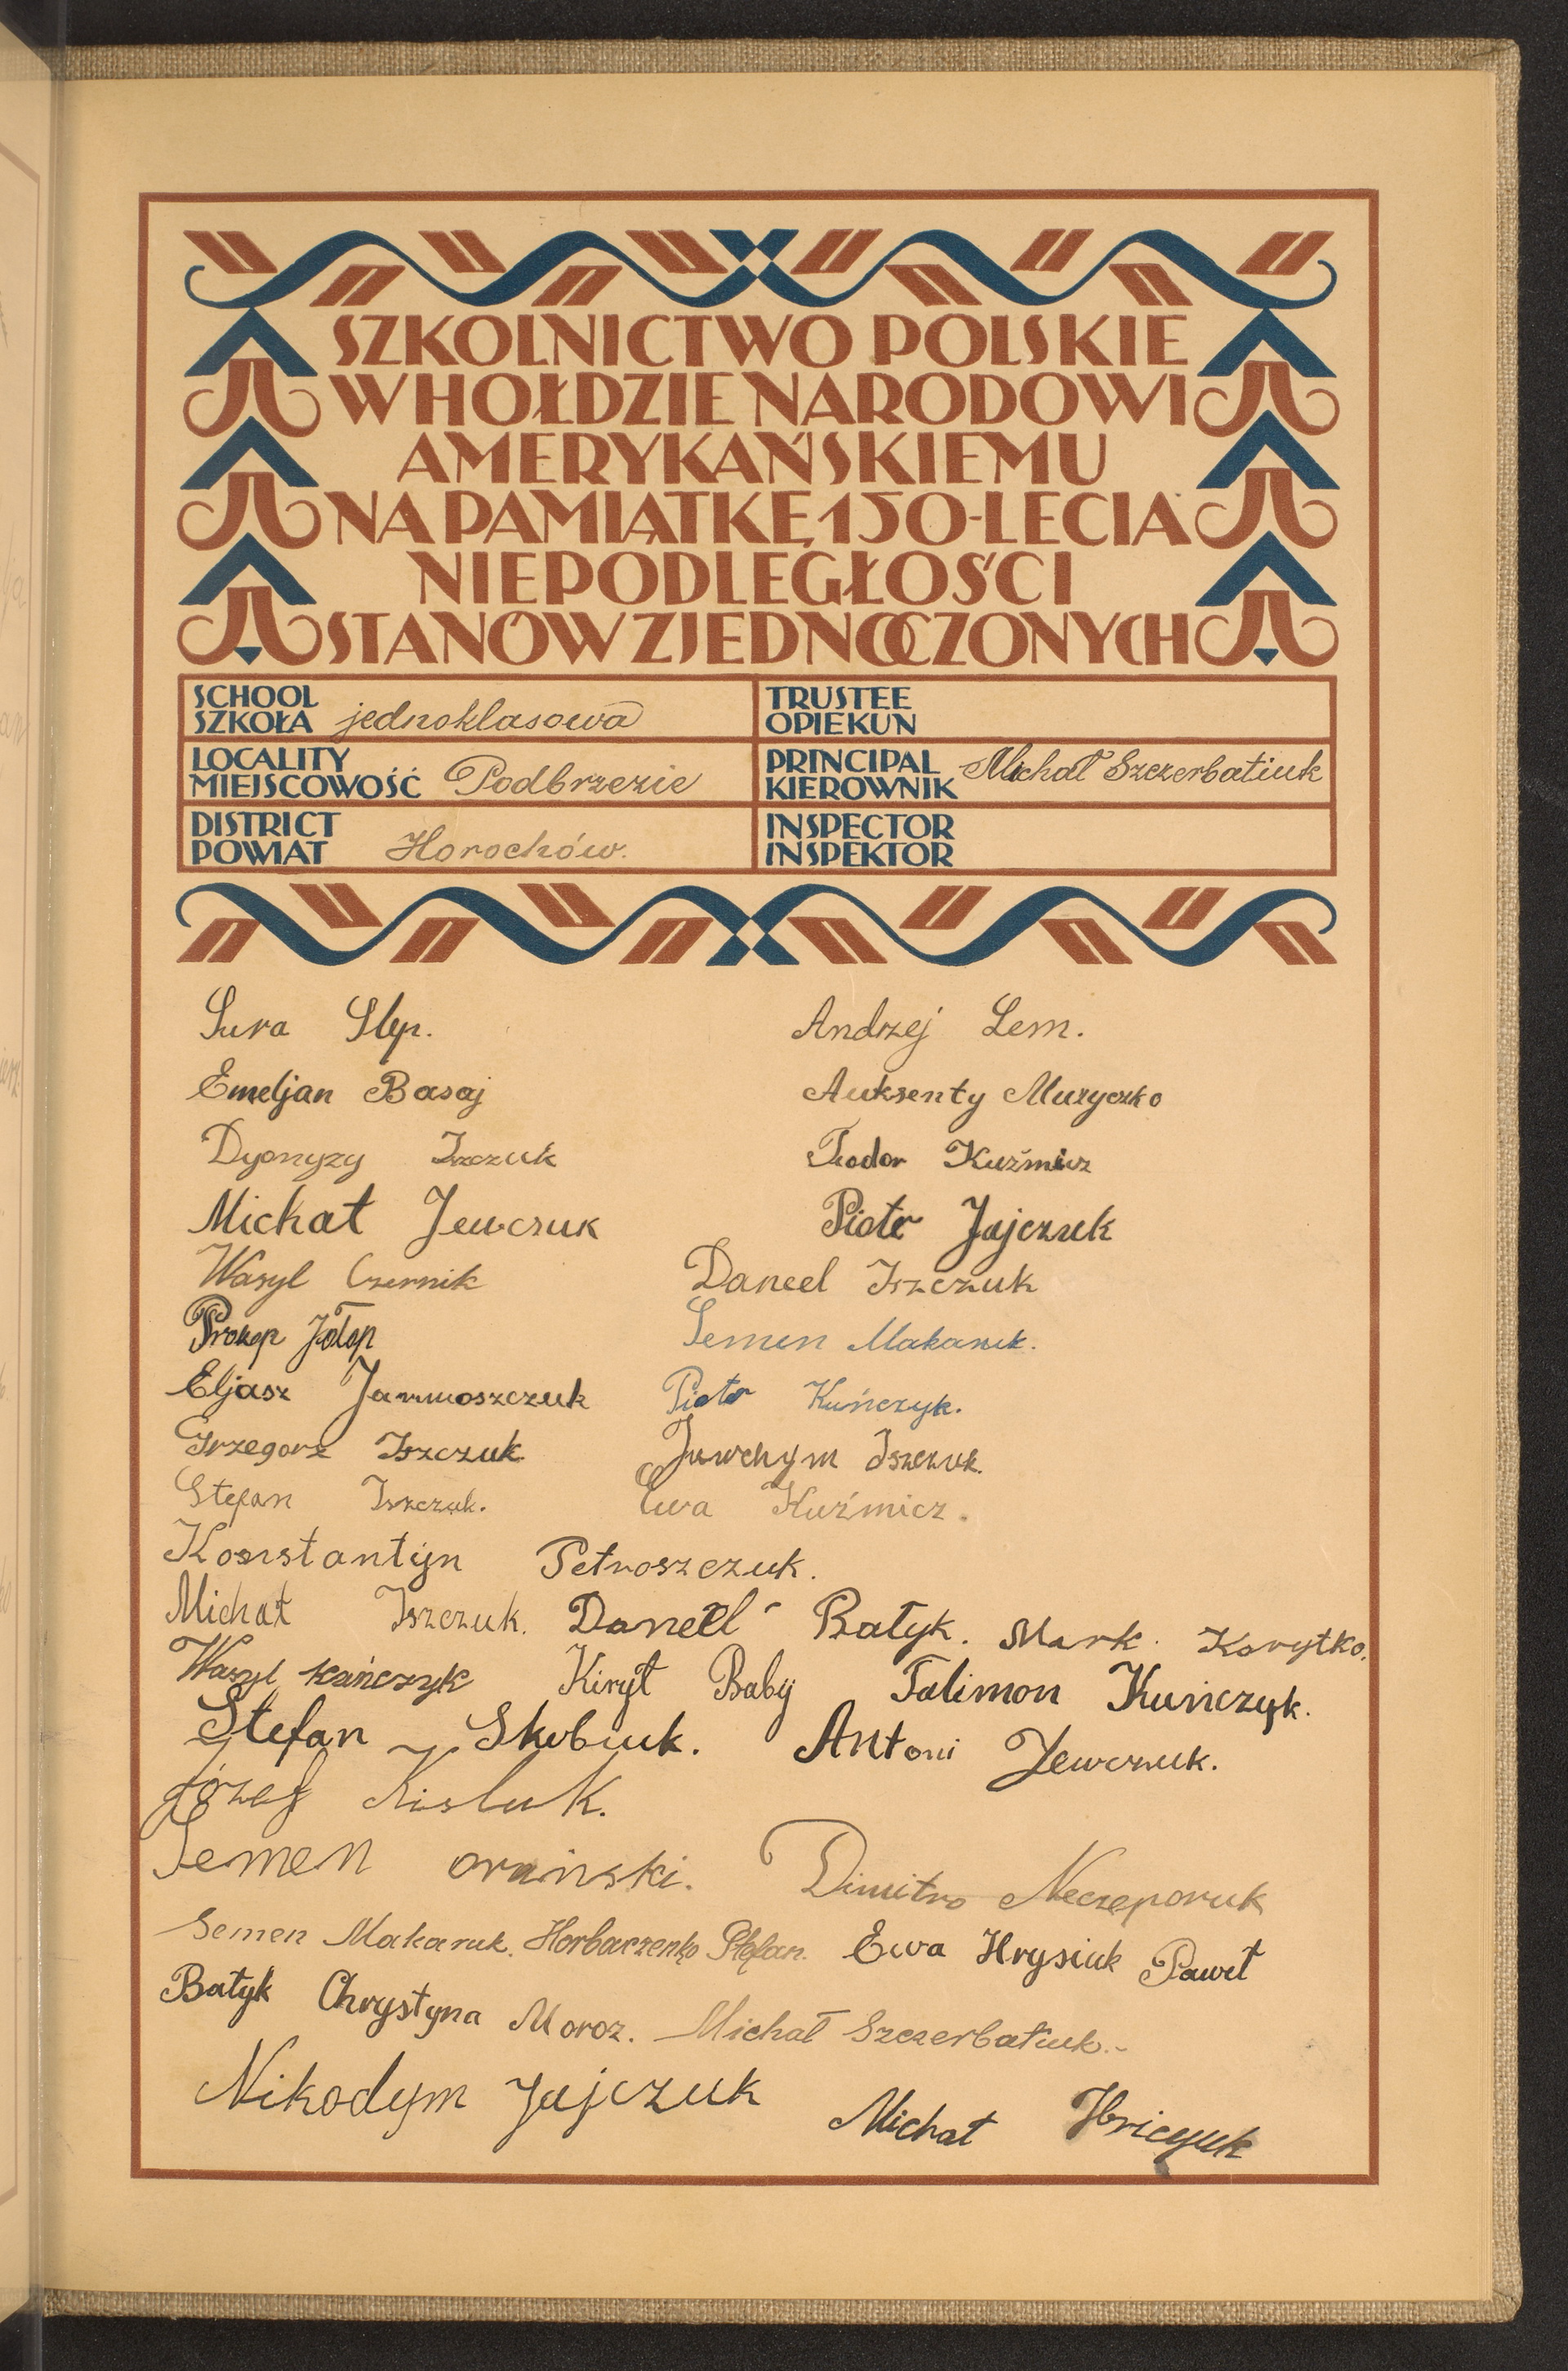 SZKOLNICTWO POLSKIE
W HOŁDZIE NARODOWI
AMERYKAŃSKIEMU
NA PAMIĄTKĘ 150-LECIA
NIEPODLEGŁOŚCI
STANÓW ZJEDNOCZONYCH
SCHOOL
SZKOŁA jednoklasowa
TRUSTEE
OPIEKUN
LOCALITY
MIEJSCOWOŚĆ Podbrzezie
PRINCIPAL
KIEROWNIK Michał Szczerbatiuk
DISTRICT
POWIAT Horochów.
INSPECTOR
INSPEKTOR
Sura Slep. Andrzej Lem.
Emeljan Basaj Auksenty Muzyczko
Dyonyzy Iszczuk Teodor Kuźmicz
Michał Jewczuk Piotr Jajczuk
Wasyl Czernik Daneel Iszczuk
Prokop Semen Makaruk.
Eljasz Piotr Kuńczyk.
Grzegorz Iszczuk Juwchym Iszczuk.
Stefan Iszczuk. Ewa Kuźmicz.
Konstantyn Petroszczuk.
Michał Iszczuk. Daneel Bałyk. Mark. Korytko.
Wasyl Kańczyk Kirył Baby Falimon Kuńczyk.
Stefan Skobiuk. Antoni Jewczuk.
Józef Kisluk.
Semen oraiński. Dimitro Neczeporuk
Semen Makaruk. Horbaczenko Stefan. Ewa Hrysiuk Paweł
Bałyk Chrystyna Moroz. Michał Szczerbatiuk.-
Nikodym Jajczuk Michał